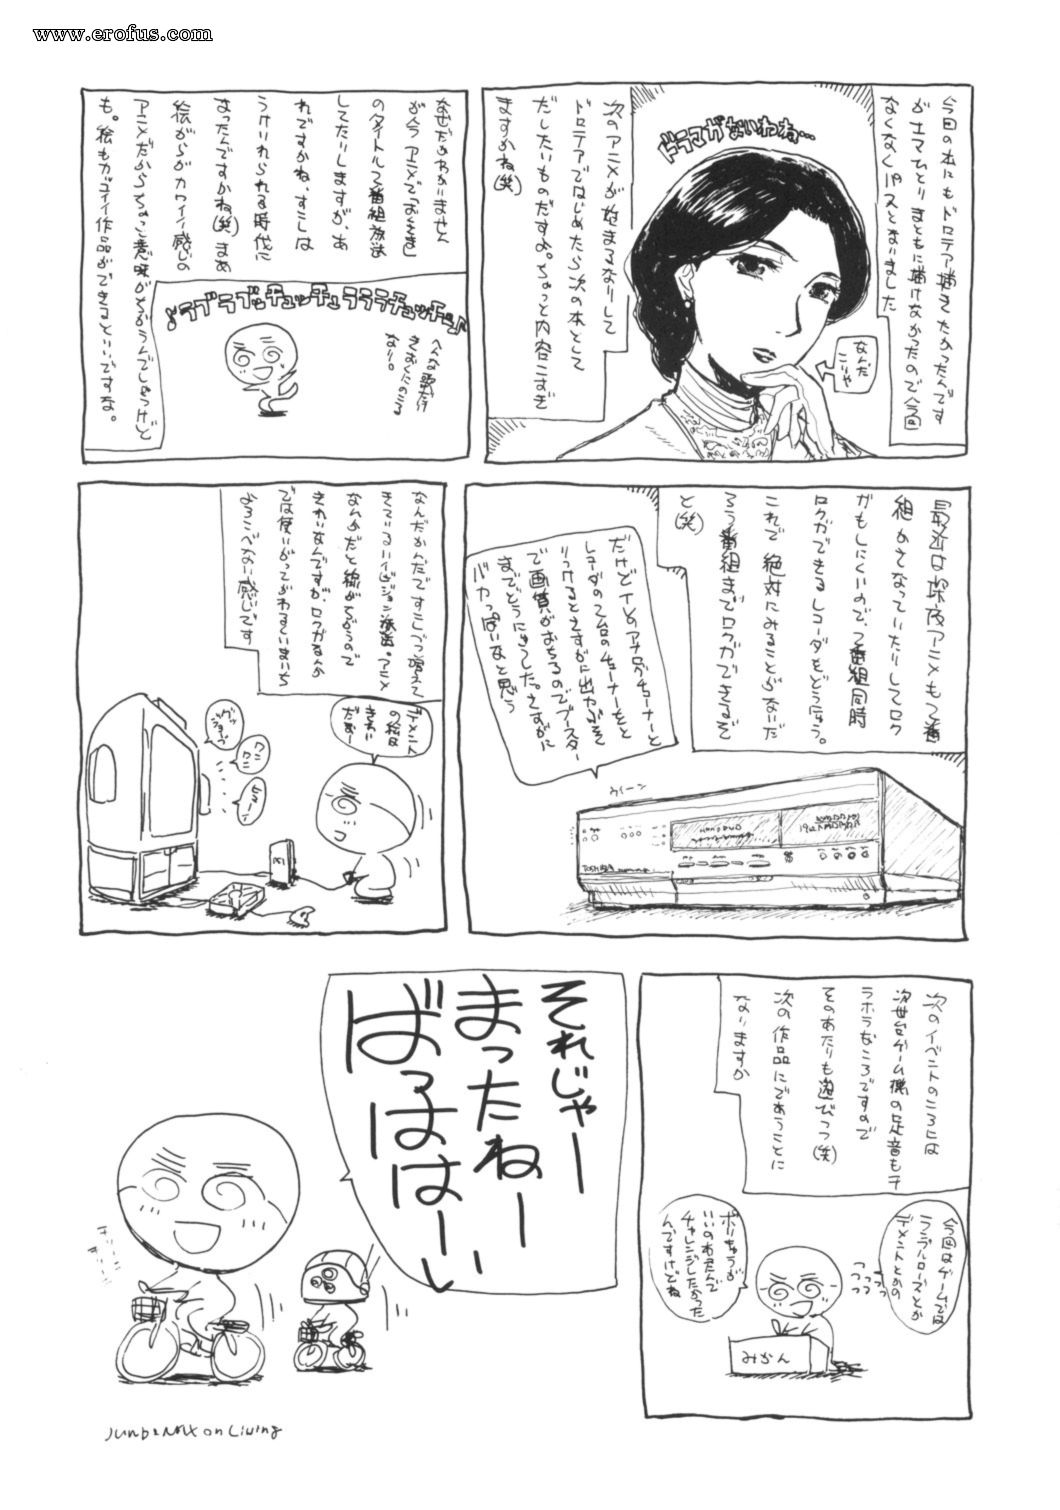 www.erofus.com
今回の本にもドロテア描きたかったんです
がナマひとりまともに描けなかったので今回
なくなくパスとなりました
ドラマがないわね…
なんだ
こりゃ
次のアニメが始まるなりして
ドロテアではじめたら次の本として
だしたいものだすよ。ちょっと内容こすぎ
ますかね(笑)
なぜだかわかりません
が今アニメで
のタイトルで番組放送
してたりしますが、あ
れですかね、すこしは
うけいれられる時代に
なったんですかね(笑)まあ
絵がらがカワイイ感じの
アニメだからちょっと意味がちがうんでしょうけど
も。絵もカッコイイ作品ができるといいですな。
♪ラブラブッチュッチュラララチュッチュ♪
へんな歌だけ
きおくにのこる
なり。
最近は深夜アニメも2番
組かさなっていたりしてロク
ガもしにくいので、2番組同時
ロクガできるレコーダをどう入。
これで絶対にみることがないだ
ろう番組までロクガできるぞ
と(笑)
だけどTVのアナログチューナーと
レコーダの2台のチューナーをと
りつけるとさすがに出力がぶそく
で画質がおちるのでブースター
までどうにゅうした。さすがに
バカっぽいなと思う
ウィーン
TOSHIBA
なんだかんだですこしづつ増えて
きているハイビジョン放送。アニメ
なんかだと線がちがうので
きれいなんですが、ロクガなんか
では使いがってがわるくいまいち
よろこべない感じです
デメント
の絵は
きれい
だなー
ワン
ワン
次のイベントのころには
次世代ゲーム機の足音もチ
ラホラなころですので
そのあたりも遊びつつ(笑)
次の作品にであうことに
なりますか
今回はゲームでは
ランブルローズとか
デメントとかの
つつつ
ポリちゅうが
いいのわだんで
チャレンジしたかった
んですけどね
みかん
それじゃー
まったねーい
ばっははーい